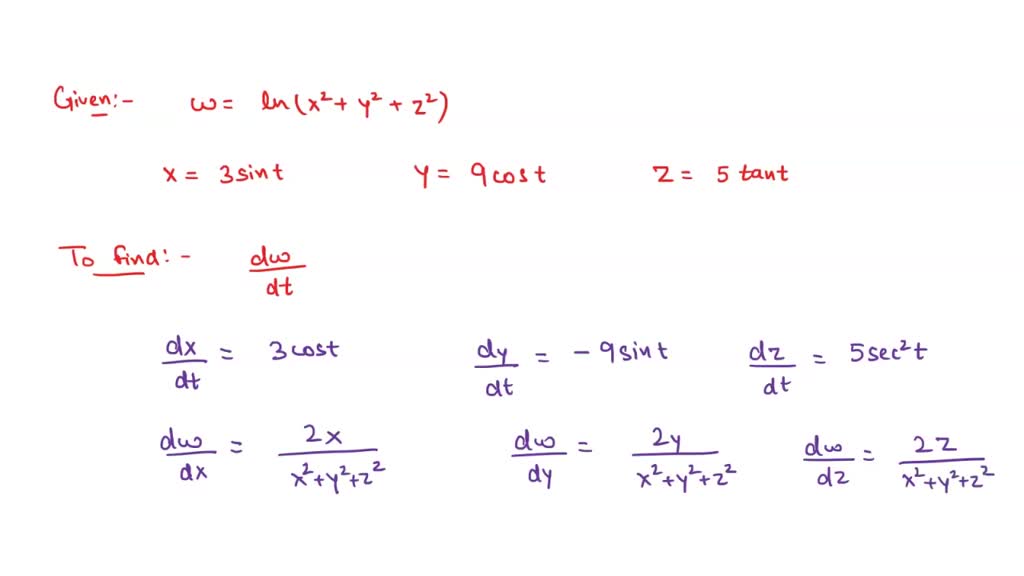 Given:- ω = ln(x² + y² + z²)
x = 3 sint y = 9 cost z = 5 tant
To find:- dω/dt
dx/dt = 3 cost dy/dt = - 9 sint dz/dt = 5 sec²t
dω/dx = 2x/x²+y²+z² dω/dy = 2y/x²+y²+z² dω/dz = 2z/x²+y²+z²